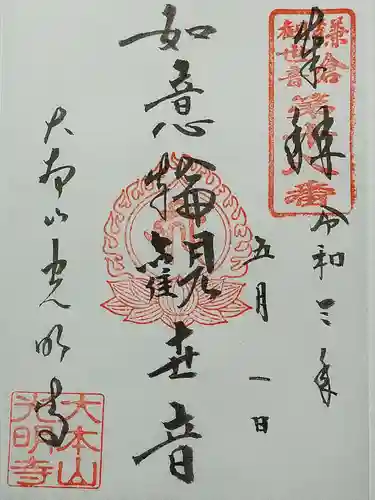 奉拝
鎌倉
観世音
第十八番
令和三年
五月一日
如意輪観世音
大本山光明寺
大本山
光明寺